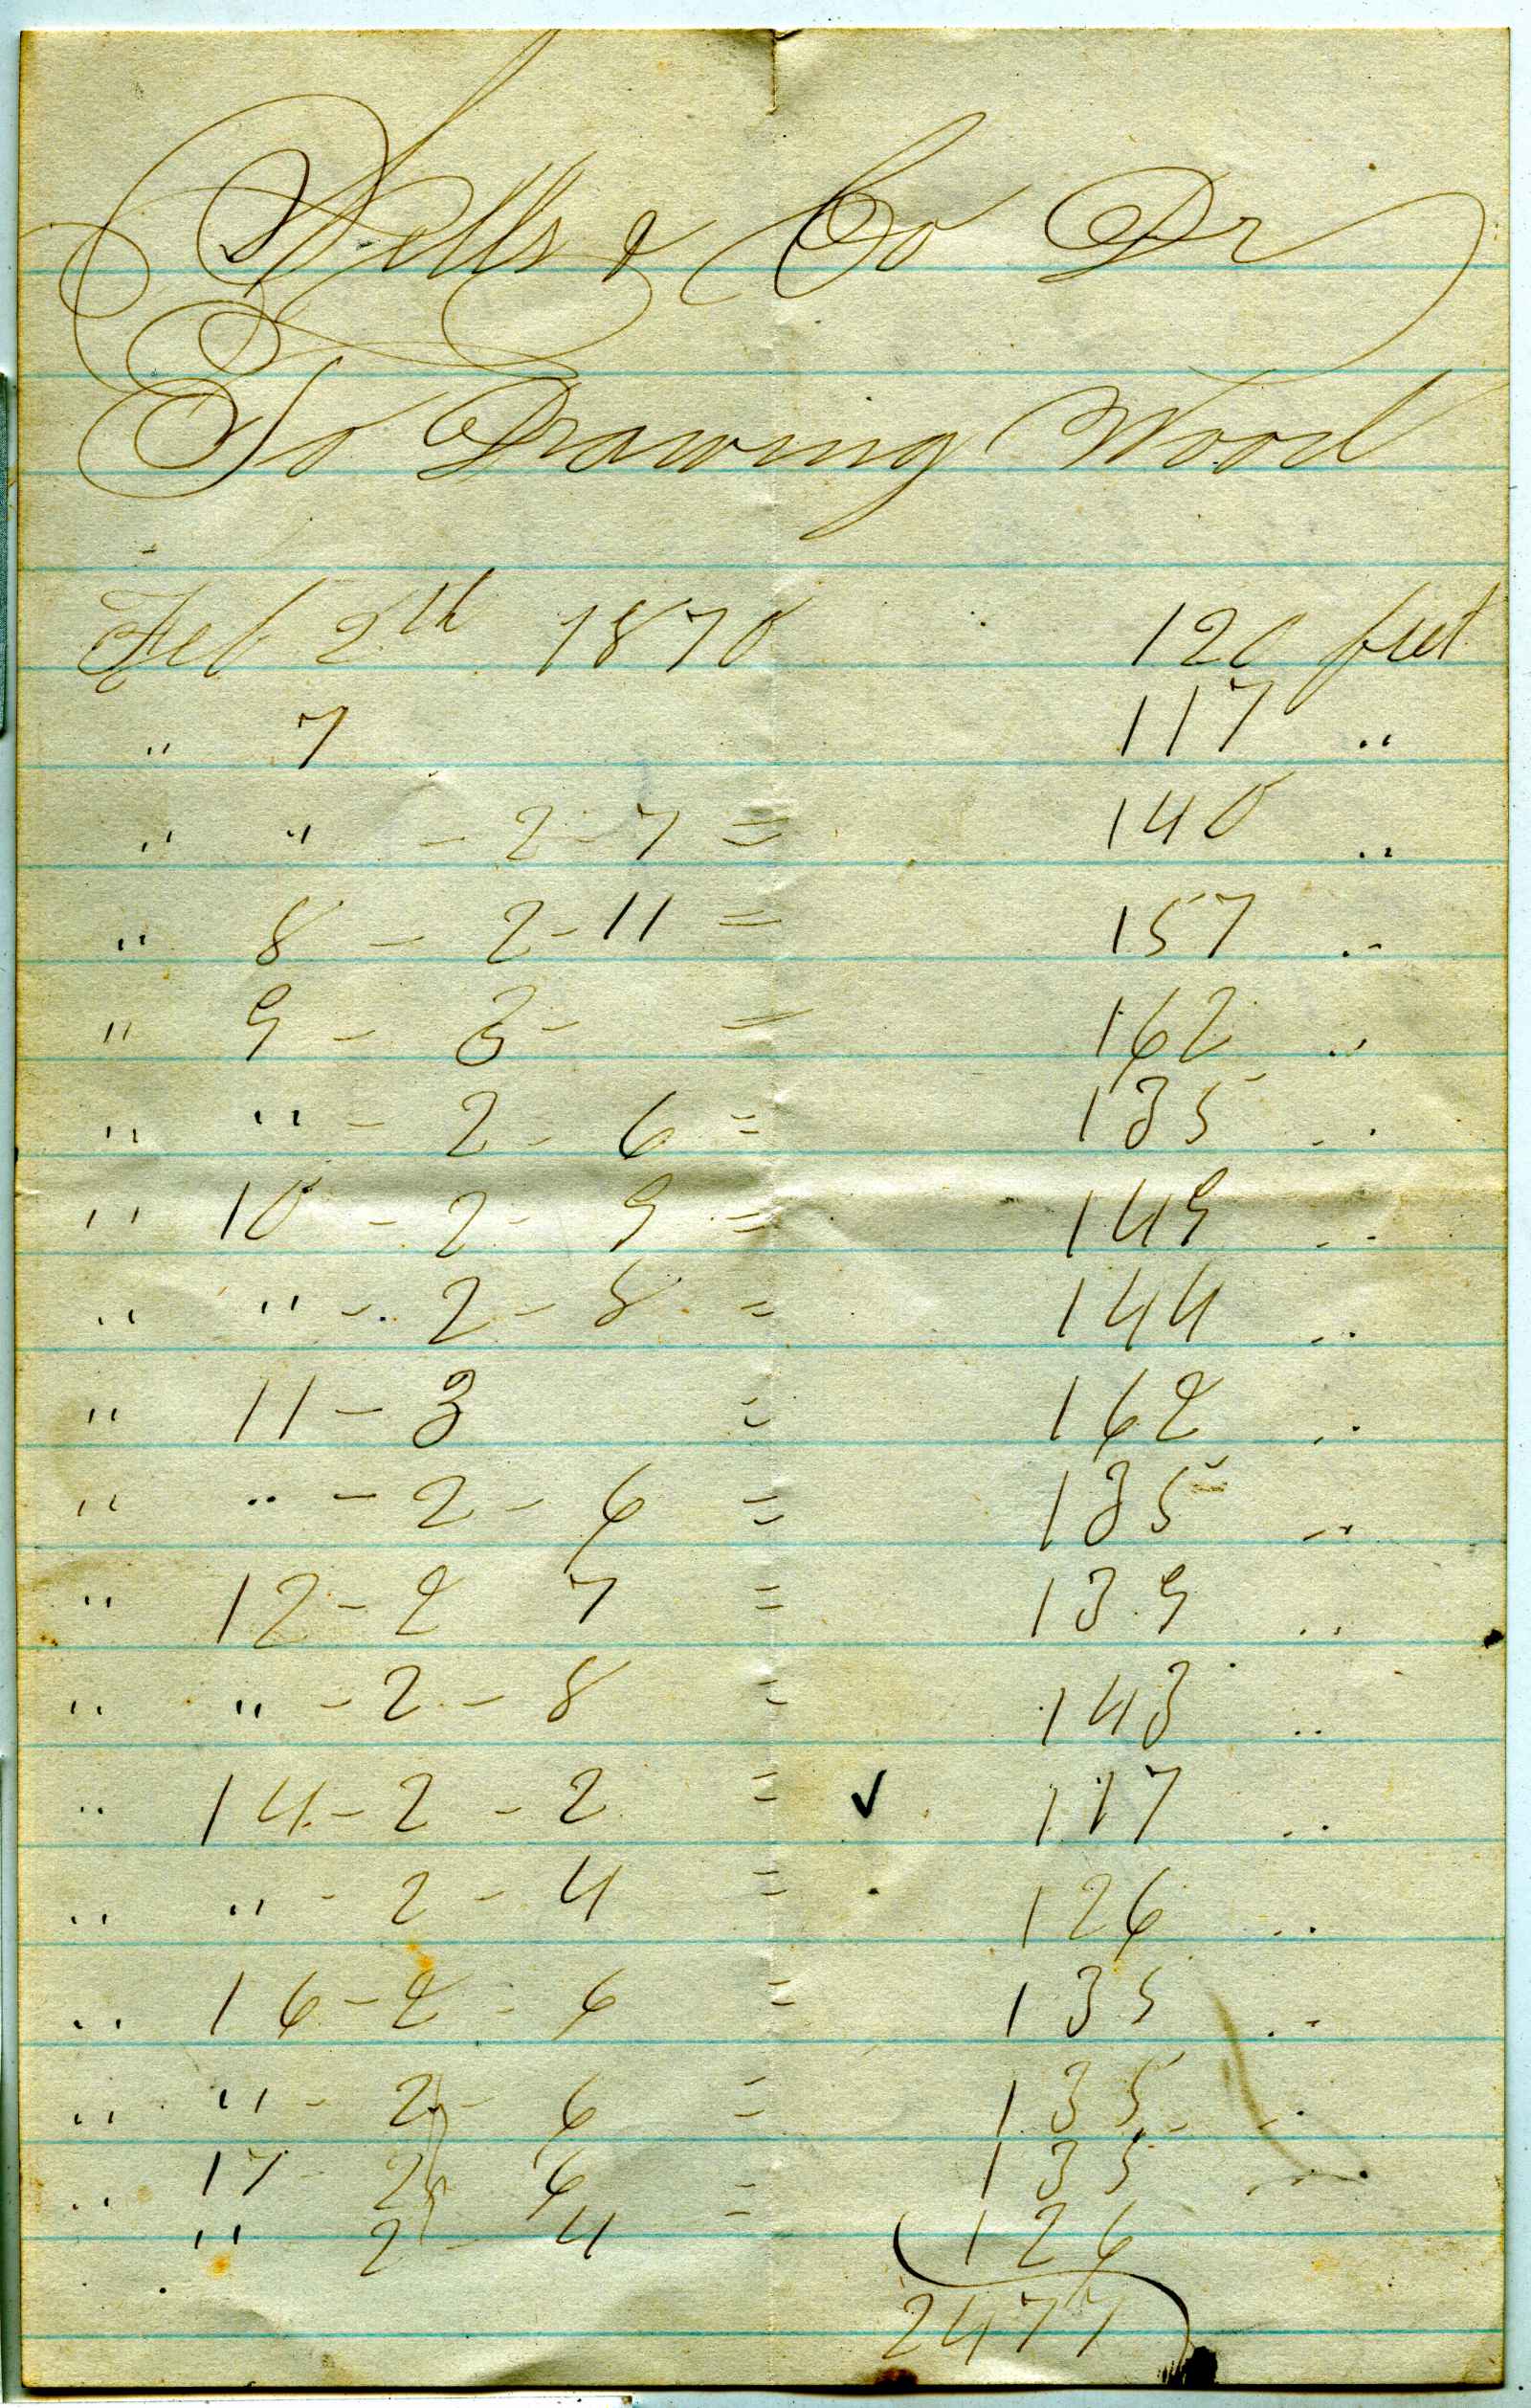 Wells & Co Dr
To Drawing Wood
Feb 2th 1870 120 feet
" 7 117 "
" " - 2 - 7 = 140 "
" 8 - 2 - 11 = 157 "
" 9 - 3 - = 162 "
" " - 2 - 6 = 135 "
" 10 - 2 - 9 = 149 "
" " - 2 - 8 = 144 "
" 11 - 3 = 162 "
" " - 2 - 6 = 135 "
" 12 - 2 7 = 139 "
" " - 2 - 8 = 143 "
" 14 - 2 - 2 = ✓ 117 "
" " - 2 - 4 = 126 "
" 16 - 2 - 6 = 135 "
" " - 2 - 6 = 135 "
" 17 - 2 - 6 = 135 "
" 2 - 4 126
2477